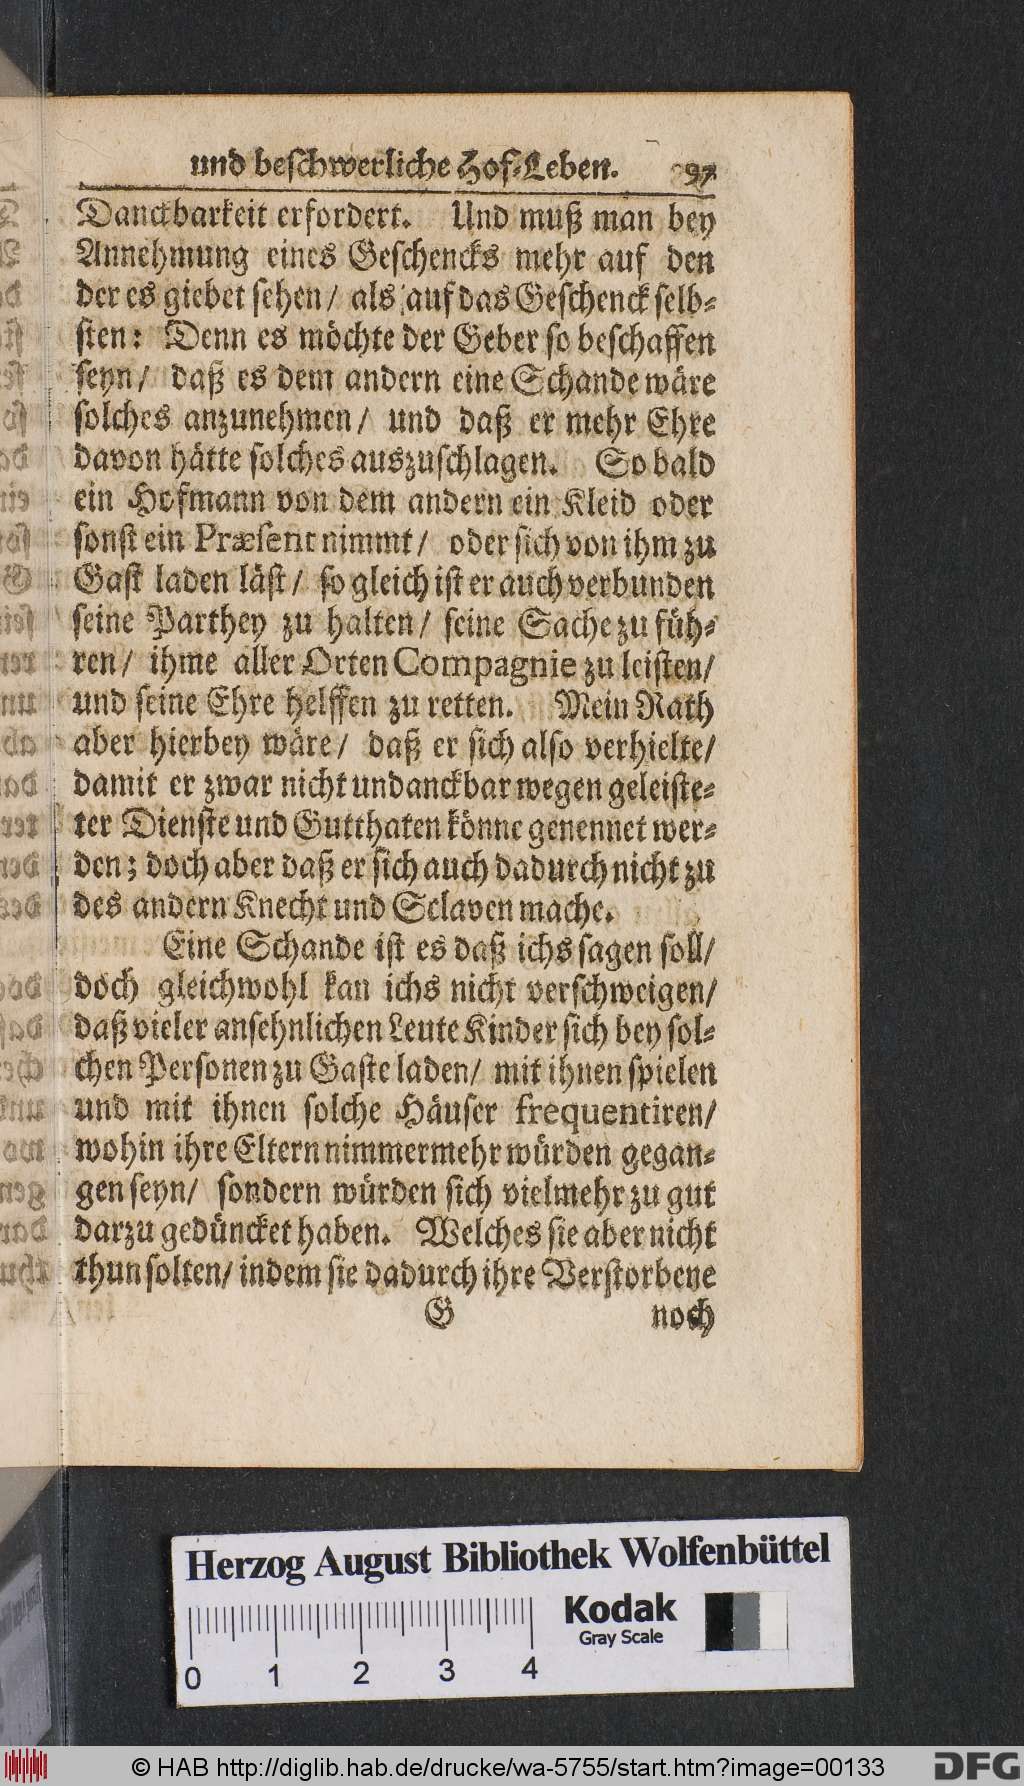 und beschwerliche Hof-Leben. 97
Danckbarkeit erfordert. Und muß man bey
Annehmung eines Geschencks mehr auf den
der es giebet sehen/ als auf das Geschenck selb-
sten: Denn es möchte der Geber so beschaffen
seyn/ daß es dem andern eine Schande wäre
solches anzunehmen/ und daß er mehr Ehre
davon hätte solches auszuschlagen. So bald
ein Hofmann von dem andern ein Kleid oder
sonst ein Præsent nimmt/ oder sich von ihm zu
Gast laden läst/ so gleich ist er auch verbunden
seine Parthey zu halten/ seine Sache zu füh-
ren/ ihme aller Orten Compagnie zu leisten/
und seine Ehre helffen zu retten. Mein Rath
aber hierbey wäre/ daß er sich also verhielte/
damit er zwar nicht undanckbar wegen geleiste-
ter Dienste und Gutthaten könne genennet wer-
den; doch aber daß er sich auch dadurch nicht zu
des andern Knecht und Sclaven mache.
Eine Schande ist es daß ichs sagen soll/
doch gleichwohl kan ichs nicht verschweigen/
daß vieler ansehnlichen Leute Kinder sich bey sol-
chen Personen zu Gaste laden/ mit ihnen spielen
und mit ihnen solche Häuser frequentiren/
wohin ihre Eltern nimmermehr würden gegan-
gen seyn/ sondern würden sich vielmehr zu gut
darzu gedüncket haben. Welches sie aber nicht
thun solten/ indem sie dadurch ihre Verstorbene
G noch
Herzog August Bibliothek Wolfenbüttel
Kodak
Gray Scale
0 1 2 3 4
© HAB http://diglib.hab.de/drucke/wa-5755/start.htm?image=00133
DFG